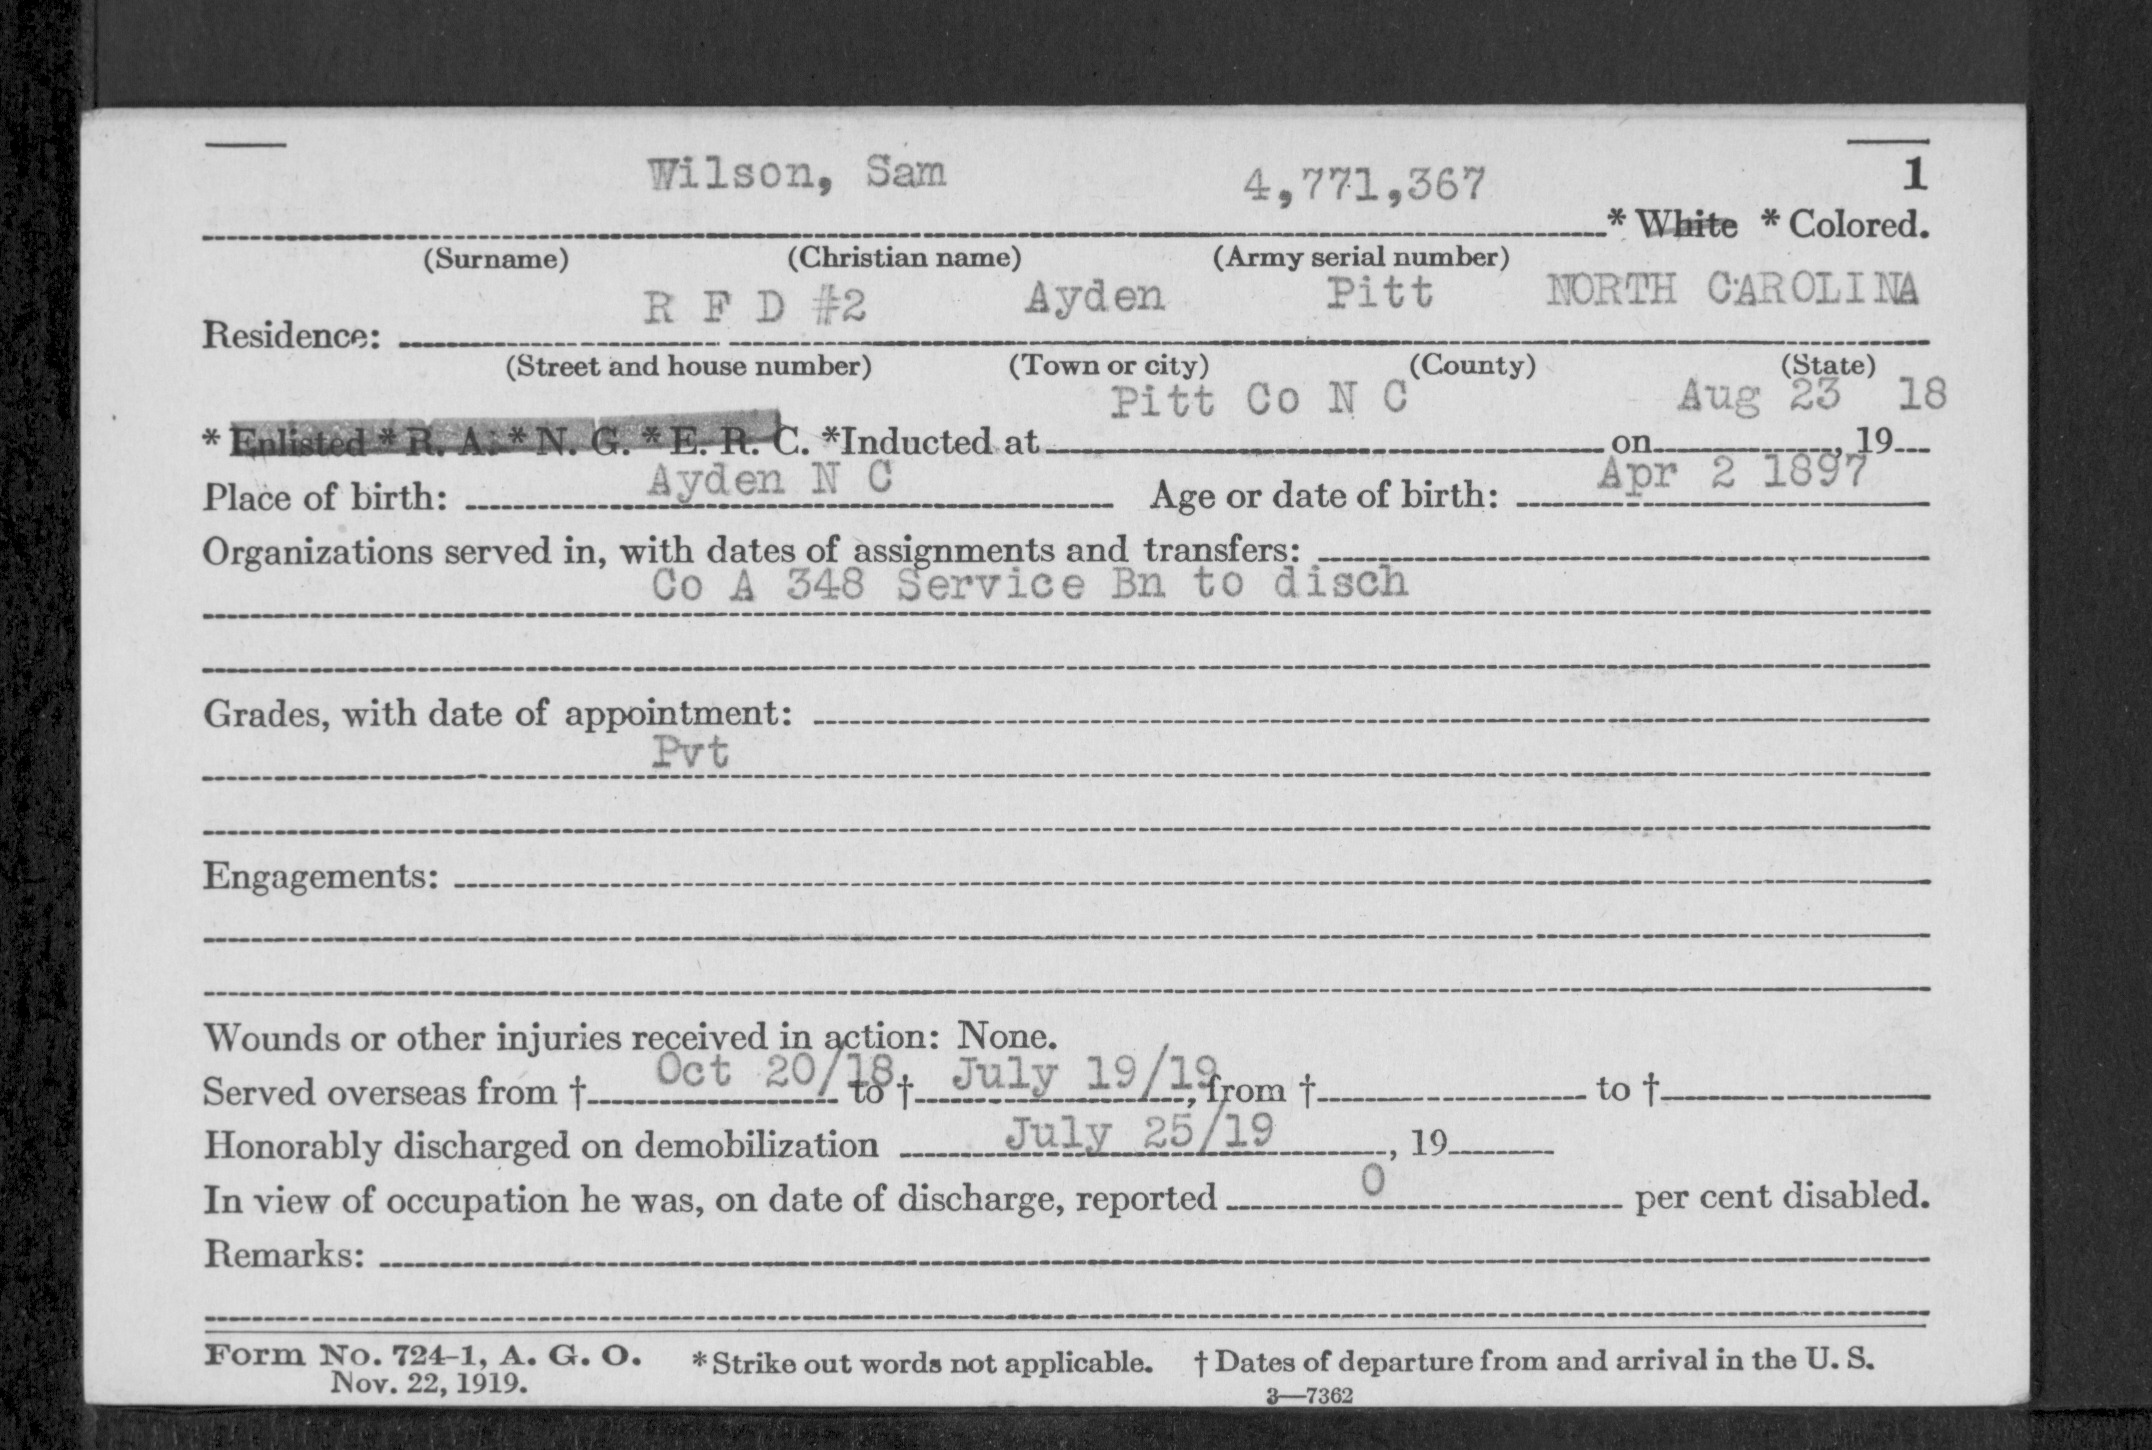 Wilson, Sam 4,771,367 1
* White * Colored.
(Surname) (Christian name) (Army serial number)
R F D #2 Ayden Pitt NORTH CAROLINA
Residence:
(Street and house number) (Town or city) (County) (State)
Pitt Co N C Aug 23 18
* Enlisted * R. A. * N. G. * E. R. C. *Inducted at on , 19
Ayden N C Apr 2 1897
Place of birth: Age or date of birth:
Organizations served in, with dates of assignments and transfers:
Co A 348 Service Bn to disch
Grades, with date of appointment:
Pvt
Engagements:
Wounds or other injuries received in action: None.
Oct 20/18 July 19/19
Served overseas from † to †, from † to †
Honorably discharged on demobilization July 25/19, 19
In view of occupation he was, on date of discharge, reported 0 per cent disabled.
Remarks:
Form No. 724-1, A. G. O. *Strike out words not applicable. † Dates of departure from and arrival in the U. S.
Nov. 22, 1919. 3—7362